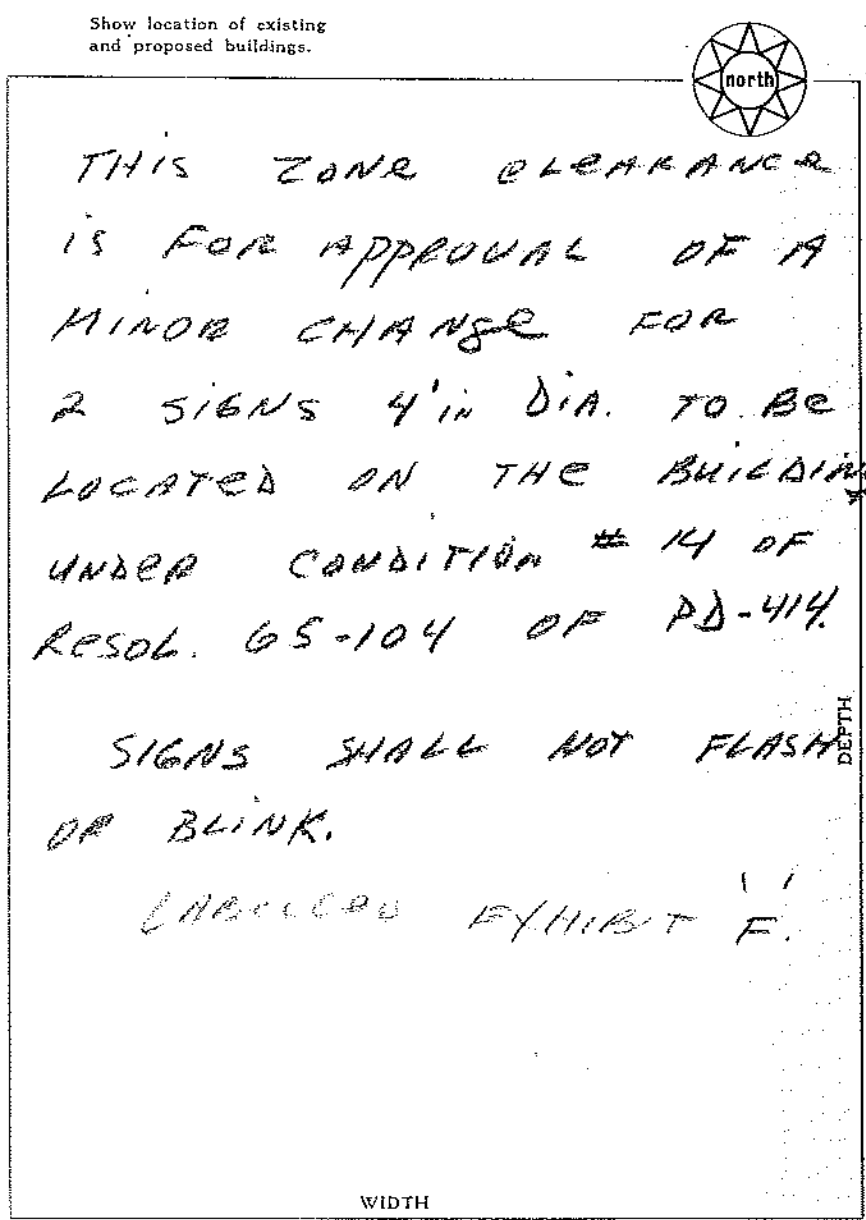 Show location of existing
and proposed buildings.
north
THIS ZONE CLEARANCE
IS FOR APPROVAL OF A
MINOR CHANGE FOR
2 SIGNS 4' in DIA. TO BE
LOCATED ON THE BUILDING
UNDER CONDITION # 14 OF
RESOL. 65-104 OF PD-414.
SIGNS SHALL NOT FLASH
OR BLINK.
LABELLED EXHIBIT "F".
DEPTH
WIDTH